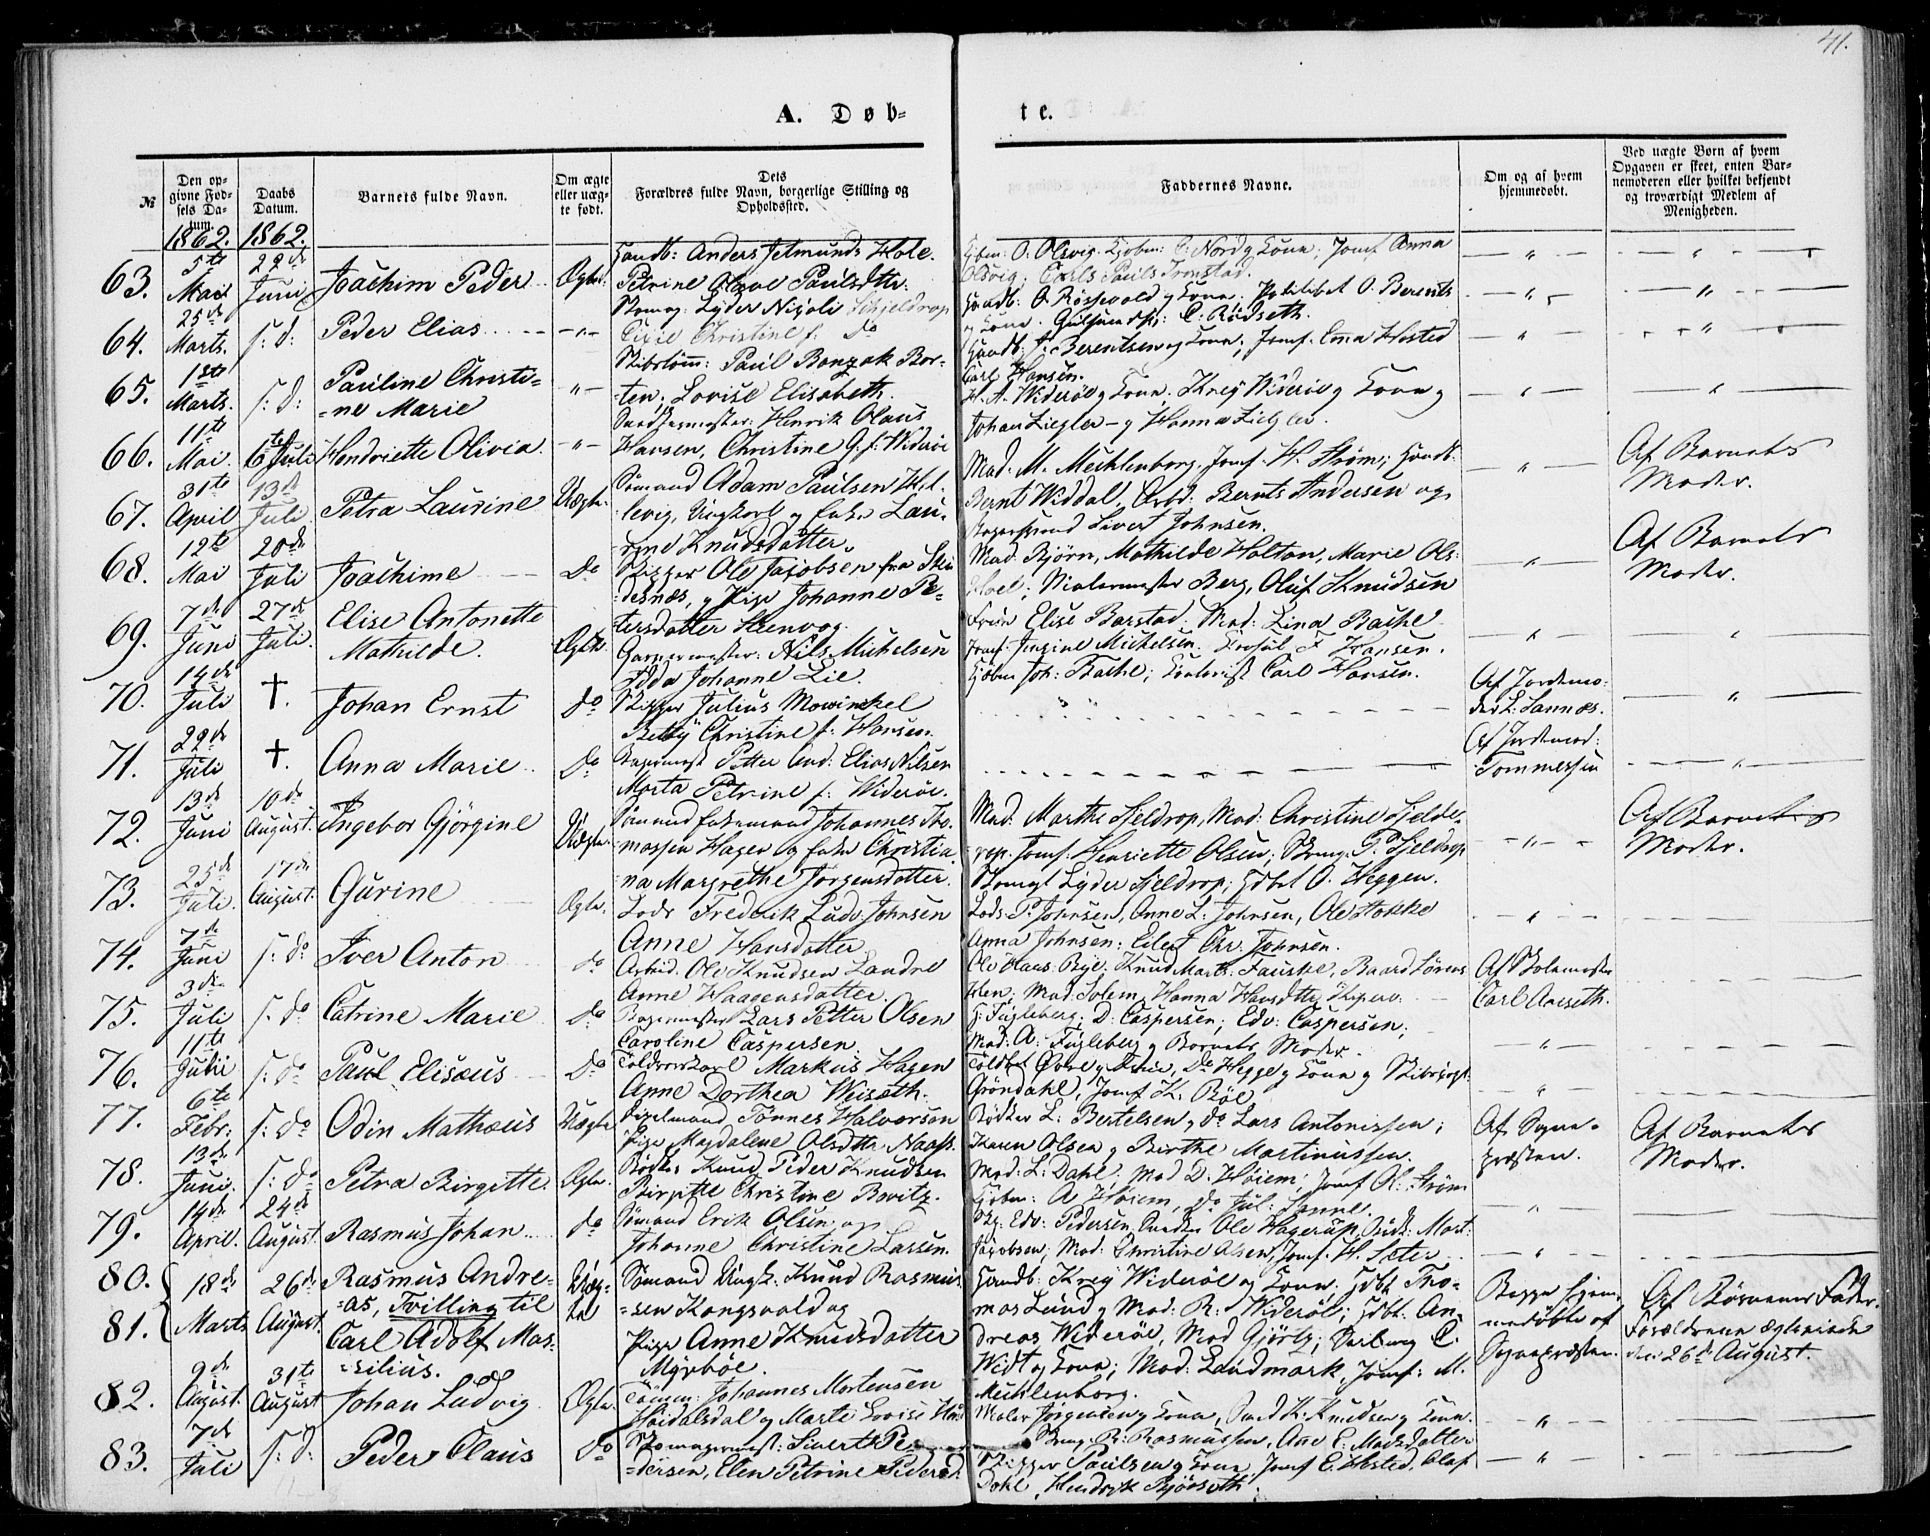 41.
A. Døb-
te.
№
Den op-
givne Fød-
sels Da-
tum.
Daabs
Datum.
Barnets fulde Navn.
Om ægte
eller uæg-
te født.
Dets
Forældres fulde Navn, borgerlige Stilling og
Opholdssted.
Faddernes Navne.
Om og af hvem
hjemmedøbt.
Ved uægte Børn af hvem
Opgaven er skeet, enten Bar-
nemoderen eller hvilket bekjendt
og troværdigt Medlem af
Menigheden.
1862. 1862.
63. 5te Mai 22de Juni Joachim Peder Ægte.
Handb: Anders Hole.
Petrine Olave Paulsdtr.
Kjbm: O. Olsvig. Kjøbm: C. Nord g Kone. Jomf Anna
Olsvig; Carls Pauls Tronstad.
64. 25de Marts. s: d: Peder Elias — " —
Skomag: Lyder Nicolai Schjeldrop
Christine f: do
Handb: O. Røssevold g Kone; O. Berents
g Kone. C. Rødseth.
65. 1ste Marts. s: d: Pauline Christi-
=ne Marie " —
Skibstømm: Paul Bonzak Bor-
ten; Lovise Elisabeth.
Handb: J. Berentsen g Kone, Jomf. Ena Hosted
Carl Hansen.
66. 11te Mai 6te Juli Hendriette Olivia. — " —
Henrik Olaus
Hansen, Christine G. f: Widerøe
H. A. Widerøe g Kone; Krey Widerøe g Kone g
Johan Ziegler — g Hanna Ziegler.
67. 31te April 13de Juli Petra Laurine Uægte.
Sømand Adam Paulsen Hel-
levig, Ungkarl g Enke Lau-
rine Knudsdatter.
Mad: M. Mechlenborg. Jomf. H. Strøm; Handb:
Bernt Widdal. Arbd: Bernts Andersen og
Sivert Johnsen.
Af Barnets
Moder.
68. 12te Mai 20de Juli Joachime do
Skipper Ole Jacobsen fra Sku
desnæs, g Pige Johanne Pe-
tersdatter Steenvog.
Mad: Bjørn, Mathilde Holton, Marie Ols:
Hoel; Malermester Berg, Oluf Knudsen
Af Barnets
Moder.
69. 7de Juni 27de Juli. Elise Antonette
Mathilde. Ægte
Garvermester: Nils Michelsen
Johanne Lie.
Frøken Elise Barstad. Mad: Lina Bache
Jomf. Jensine Michelsen. Konsul F Hansen.
Kjøbm Joh: Bache; Carl Hansen.
70. 14de Juli †. Johan Ernst do
Skipper Julius Mowinkel
Betty Christine f: Hansen.
Af Jordemo-
der L: Sannæs.
71. 22de Juli †. Anna Marie do
Bagermest Petter And: Elias Nilsen
Marta Petrine f: Widerøe.
Af Jordemod:
Tommessen
72. 13de Juni 10de August. Ingebor Gjørgine Uægte.
Sømand Enkemand Johannes Tho-
massen Hagen og Enke Christia-
na Margrethe Jørgensdatter.
Mad: Marthe Sjeldrop, Mad: Christine Sjelde-
rop. Jomf: Henriette Olsen; Skmg. P. Sjeldrop
Skomgr Lyder Sjeldrop; Gdbt O. Heggen.
Af Barnets
Moder.
73. 25de Juli. 17de August. Gurine Ægte.
Lods Fredrik Ludv: Johnsen
Anne Hansdatter
Lods P. Johnsen, Anne L: Johnsen, Ole Stokke
Anna Johnsen; Eilert Chr. Johnsen.
74. 7de Juni s: do Iver Anton do
Arbeid. Ole Knudsen Landre
Anne Haagensdatter
Ole Hans: Bye. Knud Marts: Fauske, Baard Sørens
Hen; Mad: Solem, Hanna Hansdtr
Af Skolemester
Carl Aarseth.
75. 3de Juli s: do Catrine Marie do
Bagermester Lars Petter Olsen
Caroline Caspersen
H: Fugleberg; D: Caspersen; Edv: Caspersen;
Mad: A: Fugleberg g Barnets Moder.
76. 11te Juli s: do Paul Eliseus do
Toldroerkarl Markus Hagen
Anne Dorthea Weiseth.
Toldbt Øvre g Kone, do Hegge g Kone g Skibsfogt
Grøndahl, Jomf K. Røe.
77. 6te Febr: s: do Odin Mathæus Uægte
Tønnes Halvorsen
Pige Magdalene Olsdtr Naass.
Bødker L: Bertelsen g do Lars Antonessen;
Karen Olsen g Birthe Martinussen.
Af Sogne-
præsten.
Af Barnets
Moder.
78. 13de Juni s: do Petra Birgitte. Ægte.
Bødker Knud Peder Knudsen
Birgitte Christine Bavitz.
Mad: L: Dahl; Mad D. Høiem; Jomf R: Strøm
Kjøbm: A Høiem, do Jul: Sanne.
79. 14de April. 24de August. Rasmus Johan do
Sømand Erik Olsen og
Johanne Christine Larsen.
Edv: Pedersen. Snedker Ole Hagerup, Mort:
Jacobsen; Mad: Christine Olsen, Jomf. H. Sæter
80. 81. 18de Marts 26de August. Rasmus Andre-
=as, Tvilling til
Carl Adolf Mas-
=silius. Uæg-
te
Sømand Ungk: Knud Rasmus-
=sen Kongsvold og
Pige Anne Knudsdatter
Myrbøe.
Handb: Krey Widerøe og Kone. Gdbt Tho-
mas Lund g Mad: R: Widerøe; Gdbt. An-
dreas Widerøe, Mad Gjørtz; C.
Widt og Kone; Mad: Landmark, Jomf: M.
Mechlenborg.
Begge hjem-
medøbte af
Sognepræsten.
Af Børnenes Fader.
Forældrene ægteviede
den 26de August.
82. 9de August. 31te August Johan Ludvig Ægte.
Tømm: Johannes Mortensen
Høidalsdal g Marte Lovise
Maler Jørgensen g Kone, Smed K. Knudsen g Kone.
83. 7de Juli s: d: Peder Claus do
Skomagermest: Sivert Pe-
=dersen, Elen Petrine Pedersd.
Skmg. R: Rasmussen, Ane E: Madsdatter
Skipper Paulsen g Kone, Jomf E. Hosted, Olaf
Dahl, Hendryk Bjørseth.